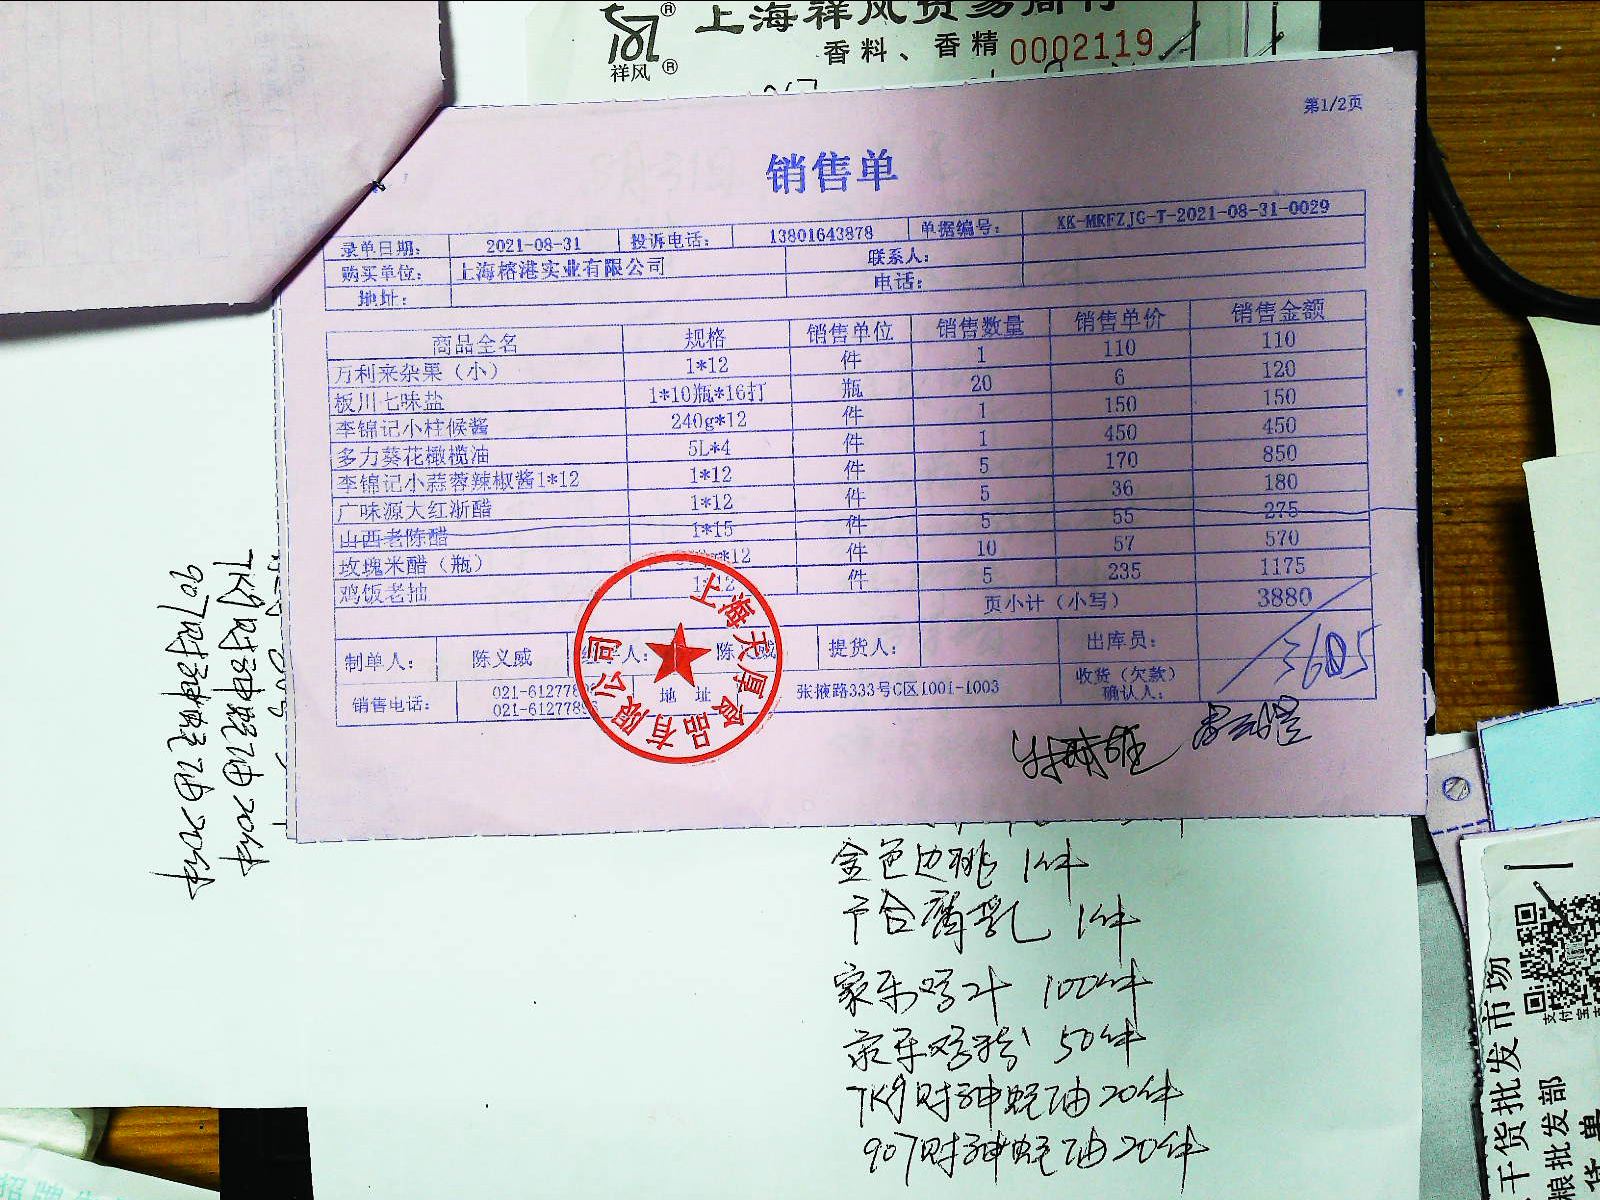 上海祥风贸易商行
香料、香精 0002119
祥风
第1/2页
销售单
录单日期： 2021-08-31 投诉电话： 13801643878 单据编号： XK-MRFZJG-T-2021-08-31-0029
购买单位： 上海榕港实业有限公司 联系人：
地址： 电话：
商品全名 规格 销售单位 销售数量 销售单价 销售金额
万利来杂果（小） 1*12 件 1 110 110
板川七味盐 1*10瓶*16打 瓶 20 6 120
李锦记小柱候酱 240g*12 件 1 150 150
多力葵花橄榄油 5L*4 件 1 450 450
李锦记小蒜蓉辣椒酱1*12 1*12 件 5 170 850
广味源大红浙醋 1*12 件 5 36 180
山西老陈醋 1*15 件 5 55 275
玫瑰米醋（瓶） *12 件 10 57 570
鸡饭老抽 1*12 件 5 235 1175
页小计（小写） 3880
3605
制单人： 陈义威 经手人： 陈义威 提货人： 出库员：
销售电话： 021-6127789 地 址 张掖路333号C区1001-1003 收货（欠款）确认人：
021-6127789
上海天厚食品有限公司
金色边桃 1件
家乐鸡汁 100件
家乐鸡粉 50件
TK9财神蚝油20件
907财神蚝油20件
TK9财神蚝油20件
907财神蚝油20件
干货批发市场
粮批发部
货单
支付宝